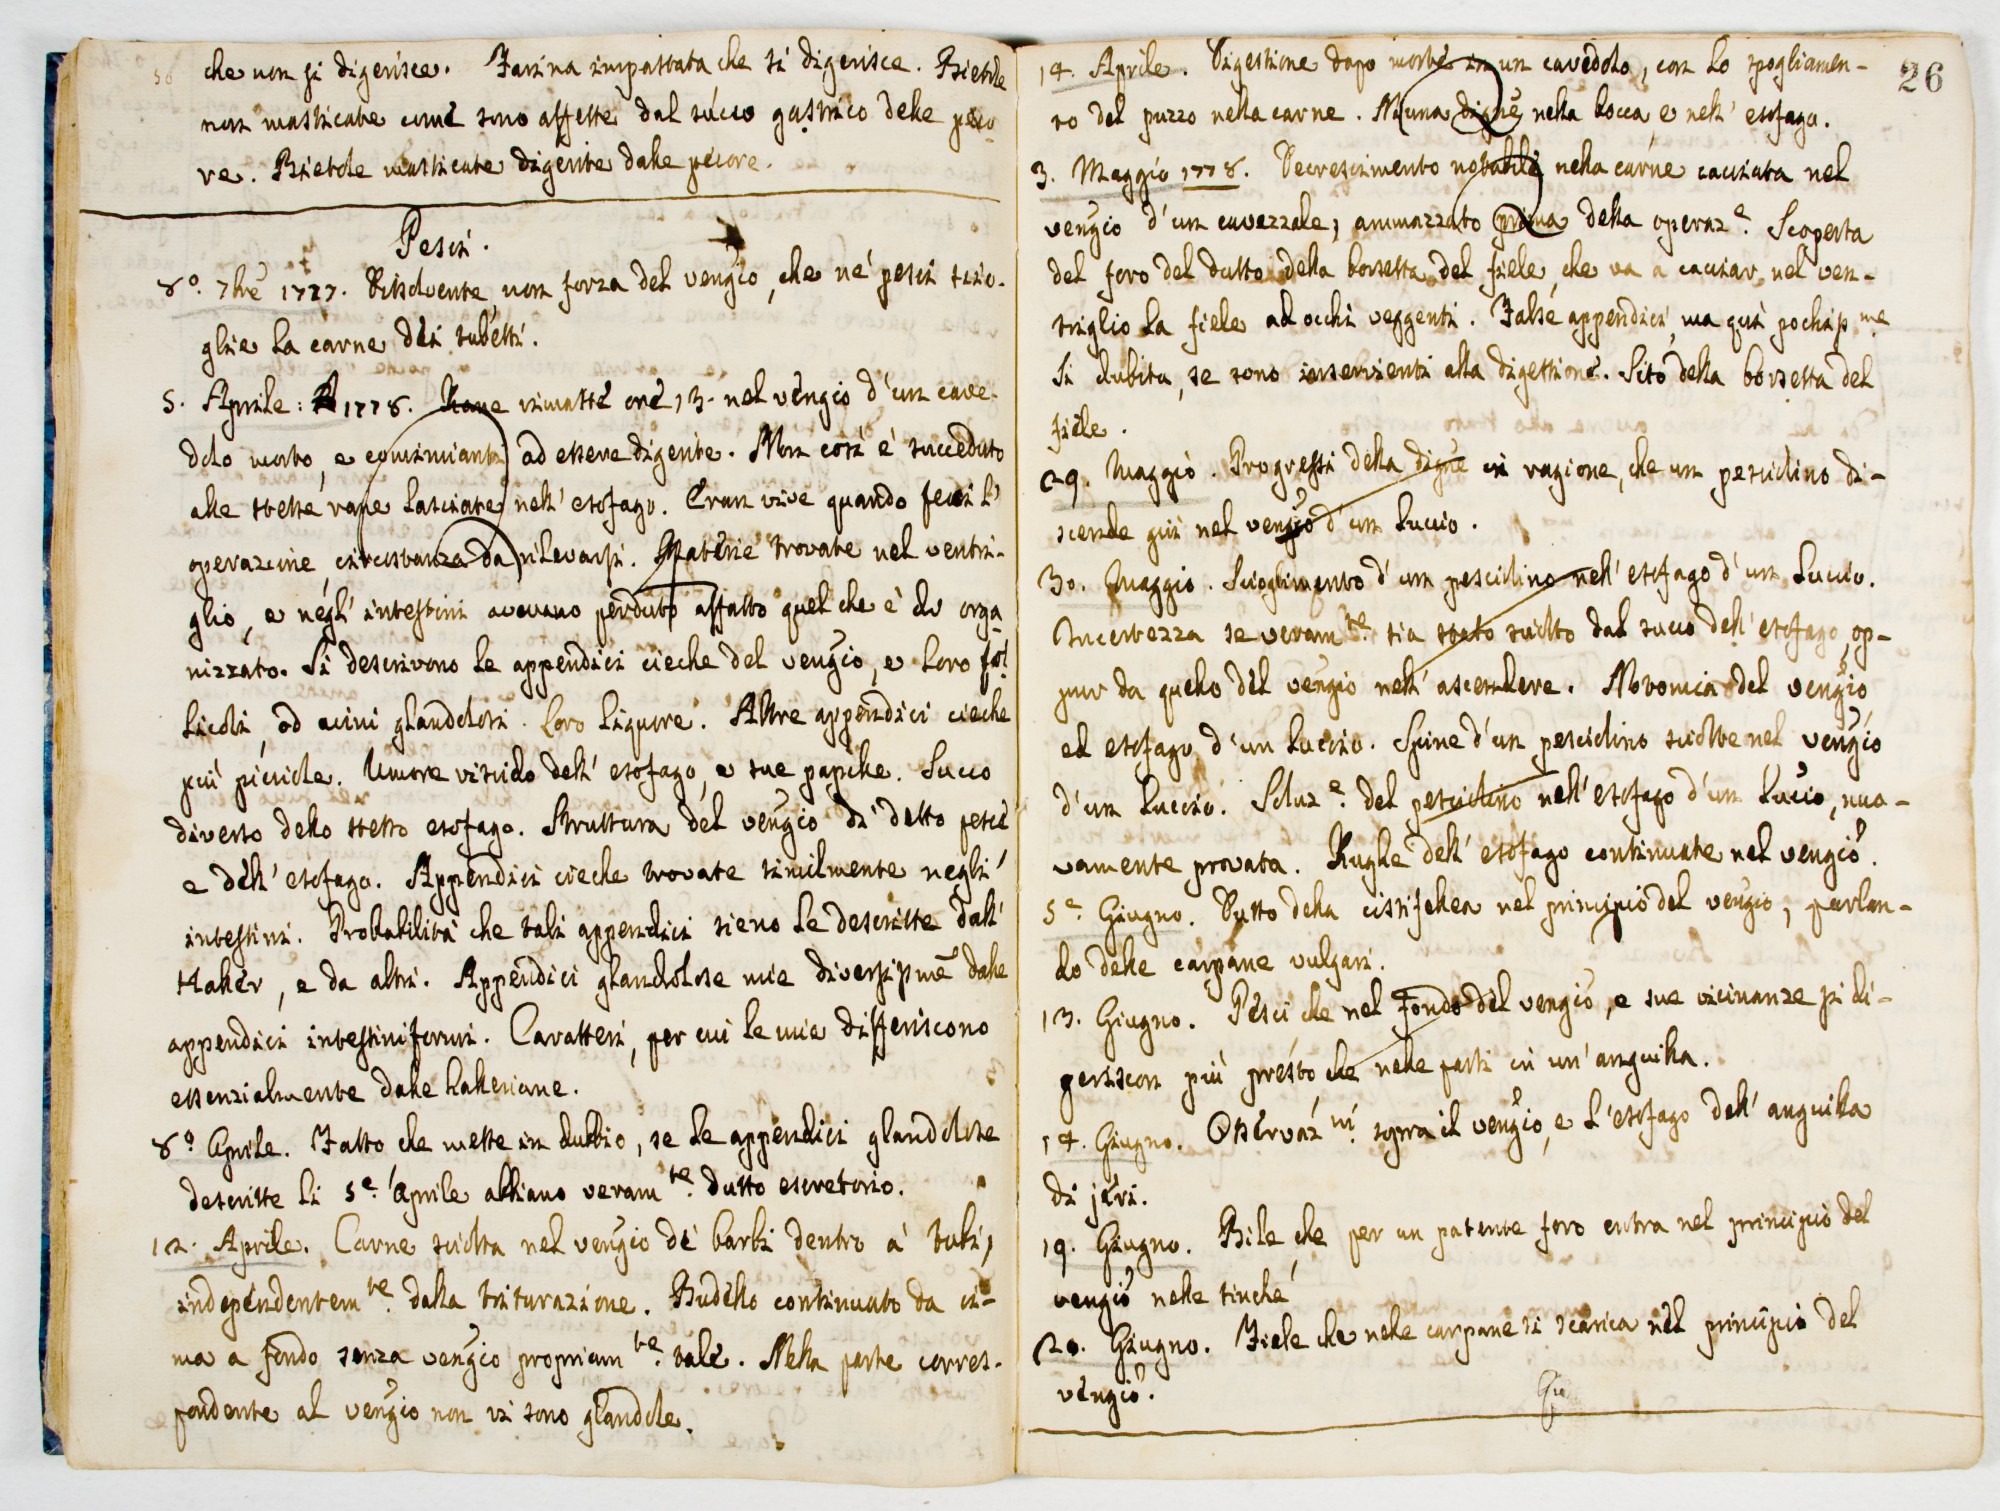 che non si digerisce. Farina impastata che si digerisce. Bietole
non masticate come sono affette dal succo gastrico delle peco
re. Bietole masticate digerite dalle pecore.
Pesci.
8º. 7bre 1777. Dissolvente, non forza del vengio, che ne' pesci scio-
glie la carne dei tubetti.
5. Aprile: 1778. Rane rimaste ore 13. nel vengio d'un cave-
dolo morto, e comincianti ad essere digerite. Non così è succeduto
alle stesse rane lasciate nell' esofago. Eran vive quando feci l'
operazione circostanza da rilevarsi. Materie trovate nel ventri-
glio, e negl' intestini avevano perduto affatto quel che è di orga-
nizzato. Si descrivono le appendici cieche del vengio, e loro fol
licoli, od acini glandolosi. Loro liquore. Altre appendici cieche
più picciole. Umore viscido dell' esofago, e sue papille. Succo
diverso dello stesso esofago. Struttura del vengio di detto pesce
e dell' esofago. Appendici cieche trovate similmente negli
intestini. Probabilità che tali appendici sieno le descritte dall'
Haller, e da altri. Appendici glandolose mie diversissme dalle
appendici intestiniformi. Caratteri, per cui le mie differiscono
essenzialmente dalle halleriane.
8º Aprile. Fatto che mette in dubbio, se le appendici glandolose
descritte li 5e. Aprile abbiano veramte. dutto escretorio.
12. Aprile. Carne sciolta nel vengio de' barbi dentro a' tubi,
independentemte. dalla triturazione. Budello continuato da ci-
ma a fondo senza vengio propriamte. tale. Nella parte corres-
pondente al vengio non vi sono glandole.
26
14. Aprile. Digestione dopo morte in un cavedolo, con lo spogliamen-
to del puzzo nella carne. Niuna digne nella bocca e nell' esofago.
3. Maggio 1778. Decrescimento notabile nella carne cacciata nel
vengio d'un cavezzale; ammazzato prima della operaze. Scoperta
del foro del dutto della borsetta del fiele, che va a cacciar nel ven-
triglio la fiele ad occhi veggenti. False appendici, ma qui pochissme
Si dubita, se sono inservienti alla digestione. Sito della borsetta del
fiele.
29. Maggio. Progressi della digne in ragione, che un pesciolino di-
scende giù nel vengio d'un luccio.
30. Maggio. Scioglimento d'un pesciolino nell' esofago d'un luccio.
Incertezza se veramte. sia stato sciolto dal succo dell' esofago, op-
pur da quello del vengio nell' ascendere. Notomia del vengio
ed esofago d'un luccio. Spine d'un pesciolino sciolte nel vengio
d'un luccio. Soluze. del pesciolino nell' esofago d'un luccio, nuo-
vamente provata. Rughe dell' esofago continuate nel vengio.
5e. Giugno. Dutto della cistifellea nel principio del vengio, parlan-
do delle carpane vulgari.
13. Giugno. Pesci che nel fondo del vengio, e sue vicinanze si di-
geriscon più presto che nelle parti in un' anguilla.
14. Giugno. Osservazni. sopra il vengio, e l'esofago dell' anguilla
di jeri.
19. Giugno. Bile che per un patente foro entra nel principio del
vengio nelle tinche
20. Giugno. Fiele che nelle carpane si scarica nel principio del
vengio.